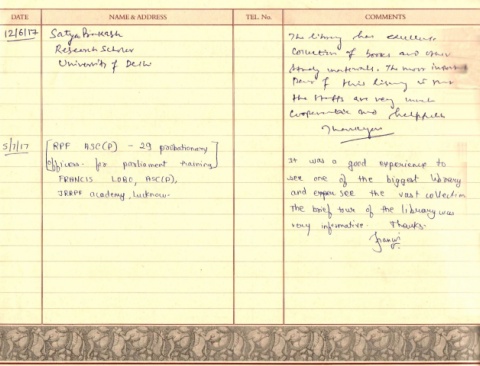 DATE NAME & ADDRESS TEL. No. COMMENTS
12/6/17 Satya Prakash
Research Scholar
University of Delhi
The library has excellent
collection of books and other
study materials. The most
of this library is that
the staffs are very much
cooperative and helpful
Thank you
5/7/17 RPF ASC(P) - 29 probationary
officers for parliament training
FRANCIS LOBO, ASC(P),
JRRPF academy, Lucknow.
It was a good experience to
see one of the biggest library
and see the vast collection
The brief tour of the library was
very informative. Thanks.